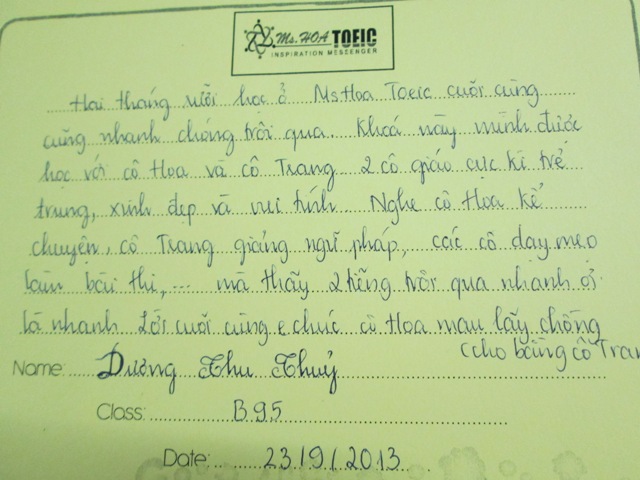 Ms. HOA TOEIC
INSPIRATION MESSENGER
Hai tháng rưỡi học ở Ms Hoa Toeic cuối cùng
cũng nhanh chóng trôi qua. Khoá này mình được
học với cô Hoa và cô Trang 2 cô giáo cực kì trẻ
trung, xinh đẹp và vui tính. Nghe cô Hoa kể
chuyện, cô Trang giảng ngữ pháp, các cô dạy mẹo
làm bài thi,... mà thấy 2 tiếng trôi qua nhanh ơi
là nhanh. Lời cuối cùng e chúc cô Hoa mau lấy chồng
(cho bằng cô Tran
Name: Dương Thu Thuỷ
Class: B95
Date: 23/9/2013